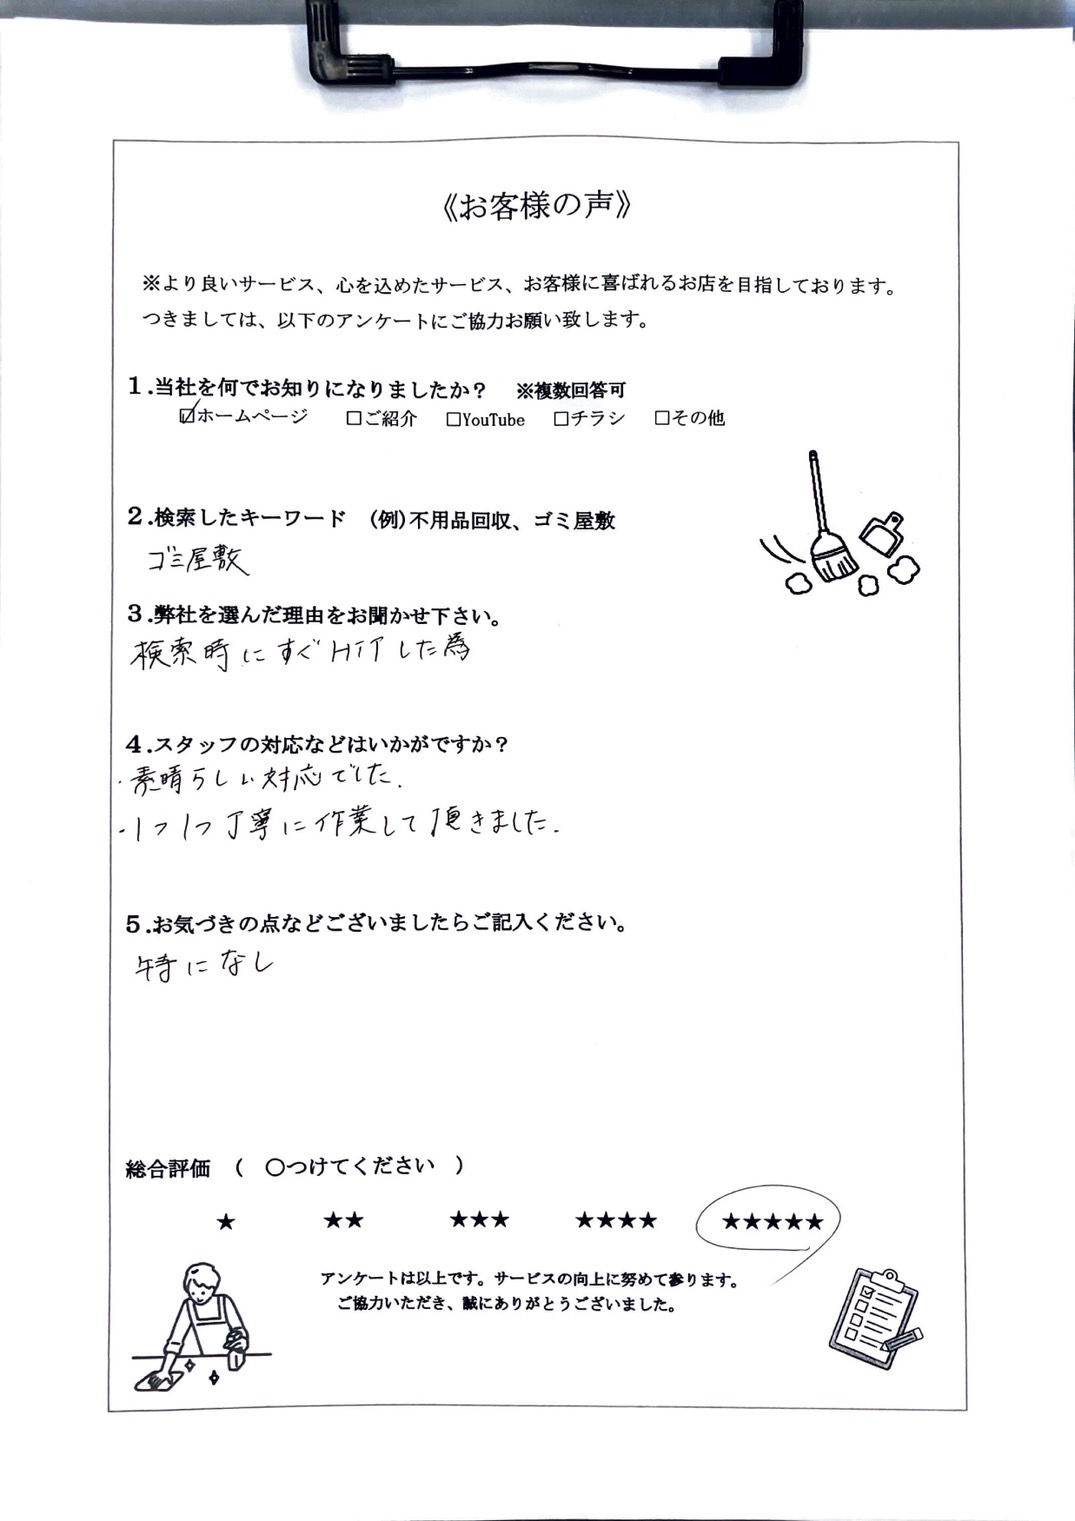 《お客様の声》
※より良いサービス、心を込めたサービス、お客様に喜ばれるお店を目指しております。
つきましては、以下のアンケートにご協力お願い致します。
1.当社を何でお知りになりましたか？　※複数回答可
☑ホームページ　□ご紹介　□YouTube　□チラシ　□その他
2.検索したキーワード　(例)不用品回収、ゴミ屋敷
ゴミ屋敷
3.弊社を選んだ理由をお聞かせ下さい。
検索時にすぐHITした為
4.スタッフの対応などはいかがですか？
・素晴らしい対応でした.
・1つ1つ丁寧に作業して頂きました.
5.お気づきの点などございましたらご記入ください。
特になし
総合評価　(　○つけてください　)
★　★★　★★★　★★★★　★★★★★
アンケートは以上です。サービスの向上に努めて参ります。
ご協力いただき、誠にありがとうございました。